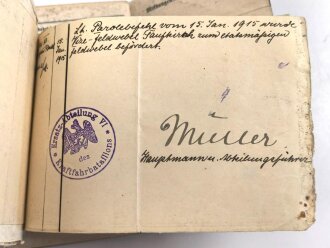 Lt. Parolebefehl vom 15. Jan. 1915 wurde
Vize-feldwebel Saufkirch zum etatmäßigen
feldwebel befördert.
Ersatz-Abteilung VI
des
Kraftfahrbataillons
Müller
Hauptmann u. Abteilungsführer